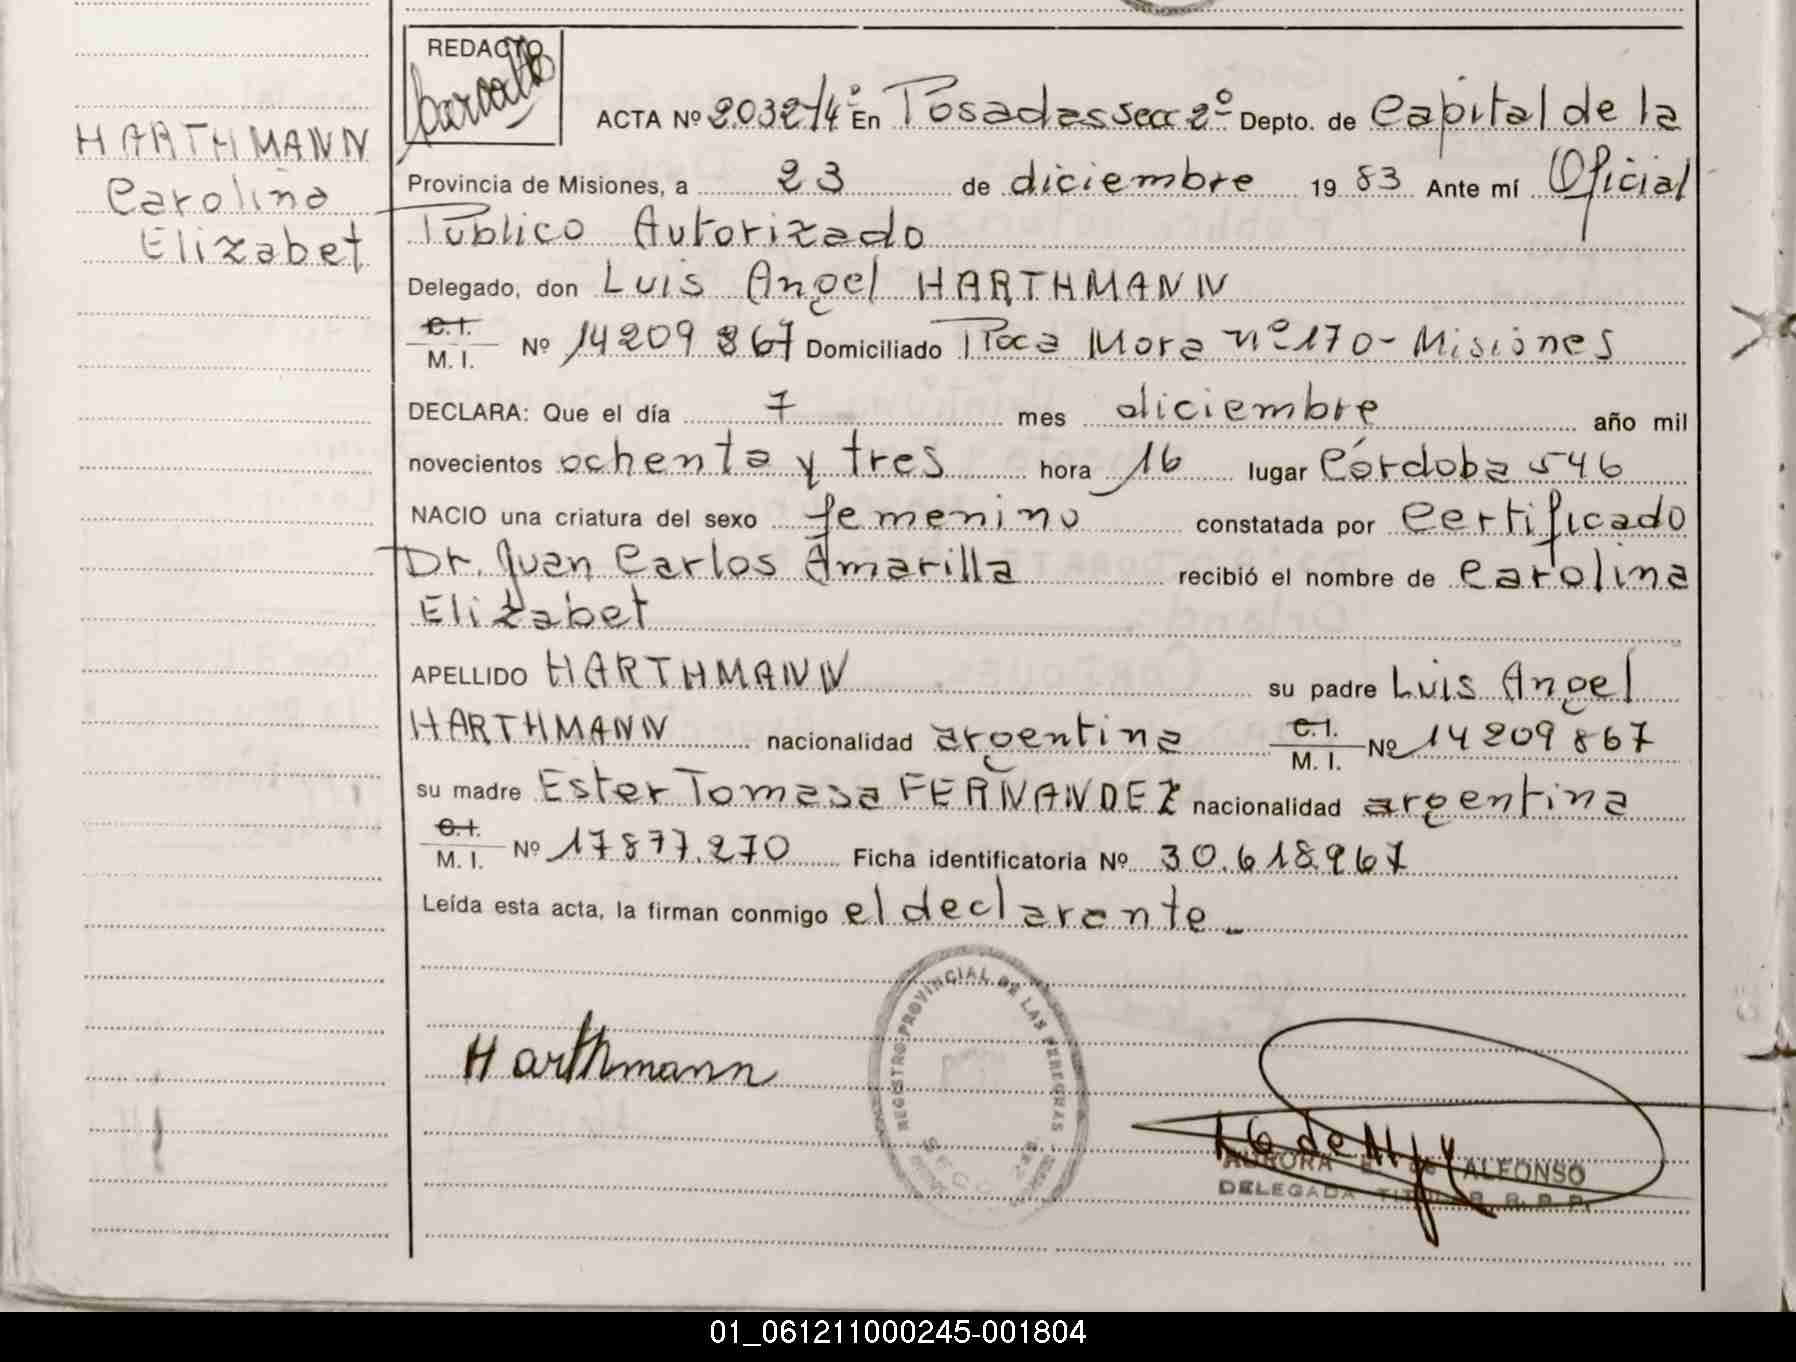 REDACTO
HARTHMANN
Carolina
Elizabet
ACTA Nº 2032/4º En Posadas secc 2º Depto. de Capital de la
Provincia de Misiones, a 23 de diciembre 1983 Ante mí Oficial
Público Autorizado
Delegado, don Luis Angel HARTHMANN
C.I.
M. I. Nº 14209867 Domiciliado Roca Mora nº 170 - Misiones
DECLARA: Que el día 7 mes diciembre año mil
novecientos ochenta y tres hora 16 lugar Córdoba 546
NACIO una criatura del sexo femenino constatada por Certificado
Dr. Juan Carlos Amarilla recibió el nombre de Carolina
Elizabet
APELLIDO HARTHMANN su padre Luis Angel
HARTHMANN nacionalidad argentina C.I. M. I. Nº 14209867
su madre Ester Tomasa FERNANDEZ nacionalidad argentina
C.I.
M. I. Nº 17877.270 Ficha identificatoria Nº 30.618967
Leída esta acta, la firman conmigo el declarante
Harthmann
REGISTRO PROVINCIAL DE LAS PERSONAS
AURORA de ALFONSO
DELEGADA TITULAR R. P. P.
01_061211000245-001804